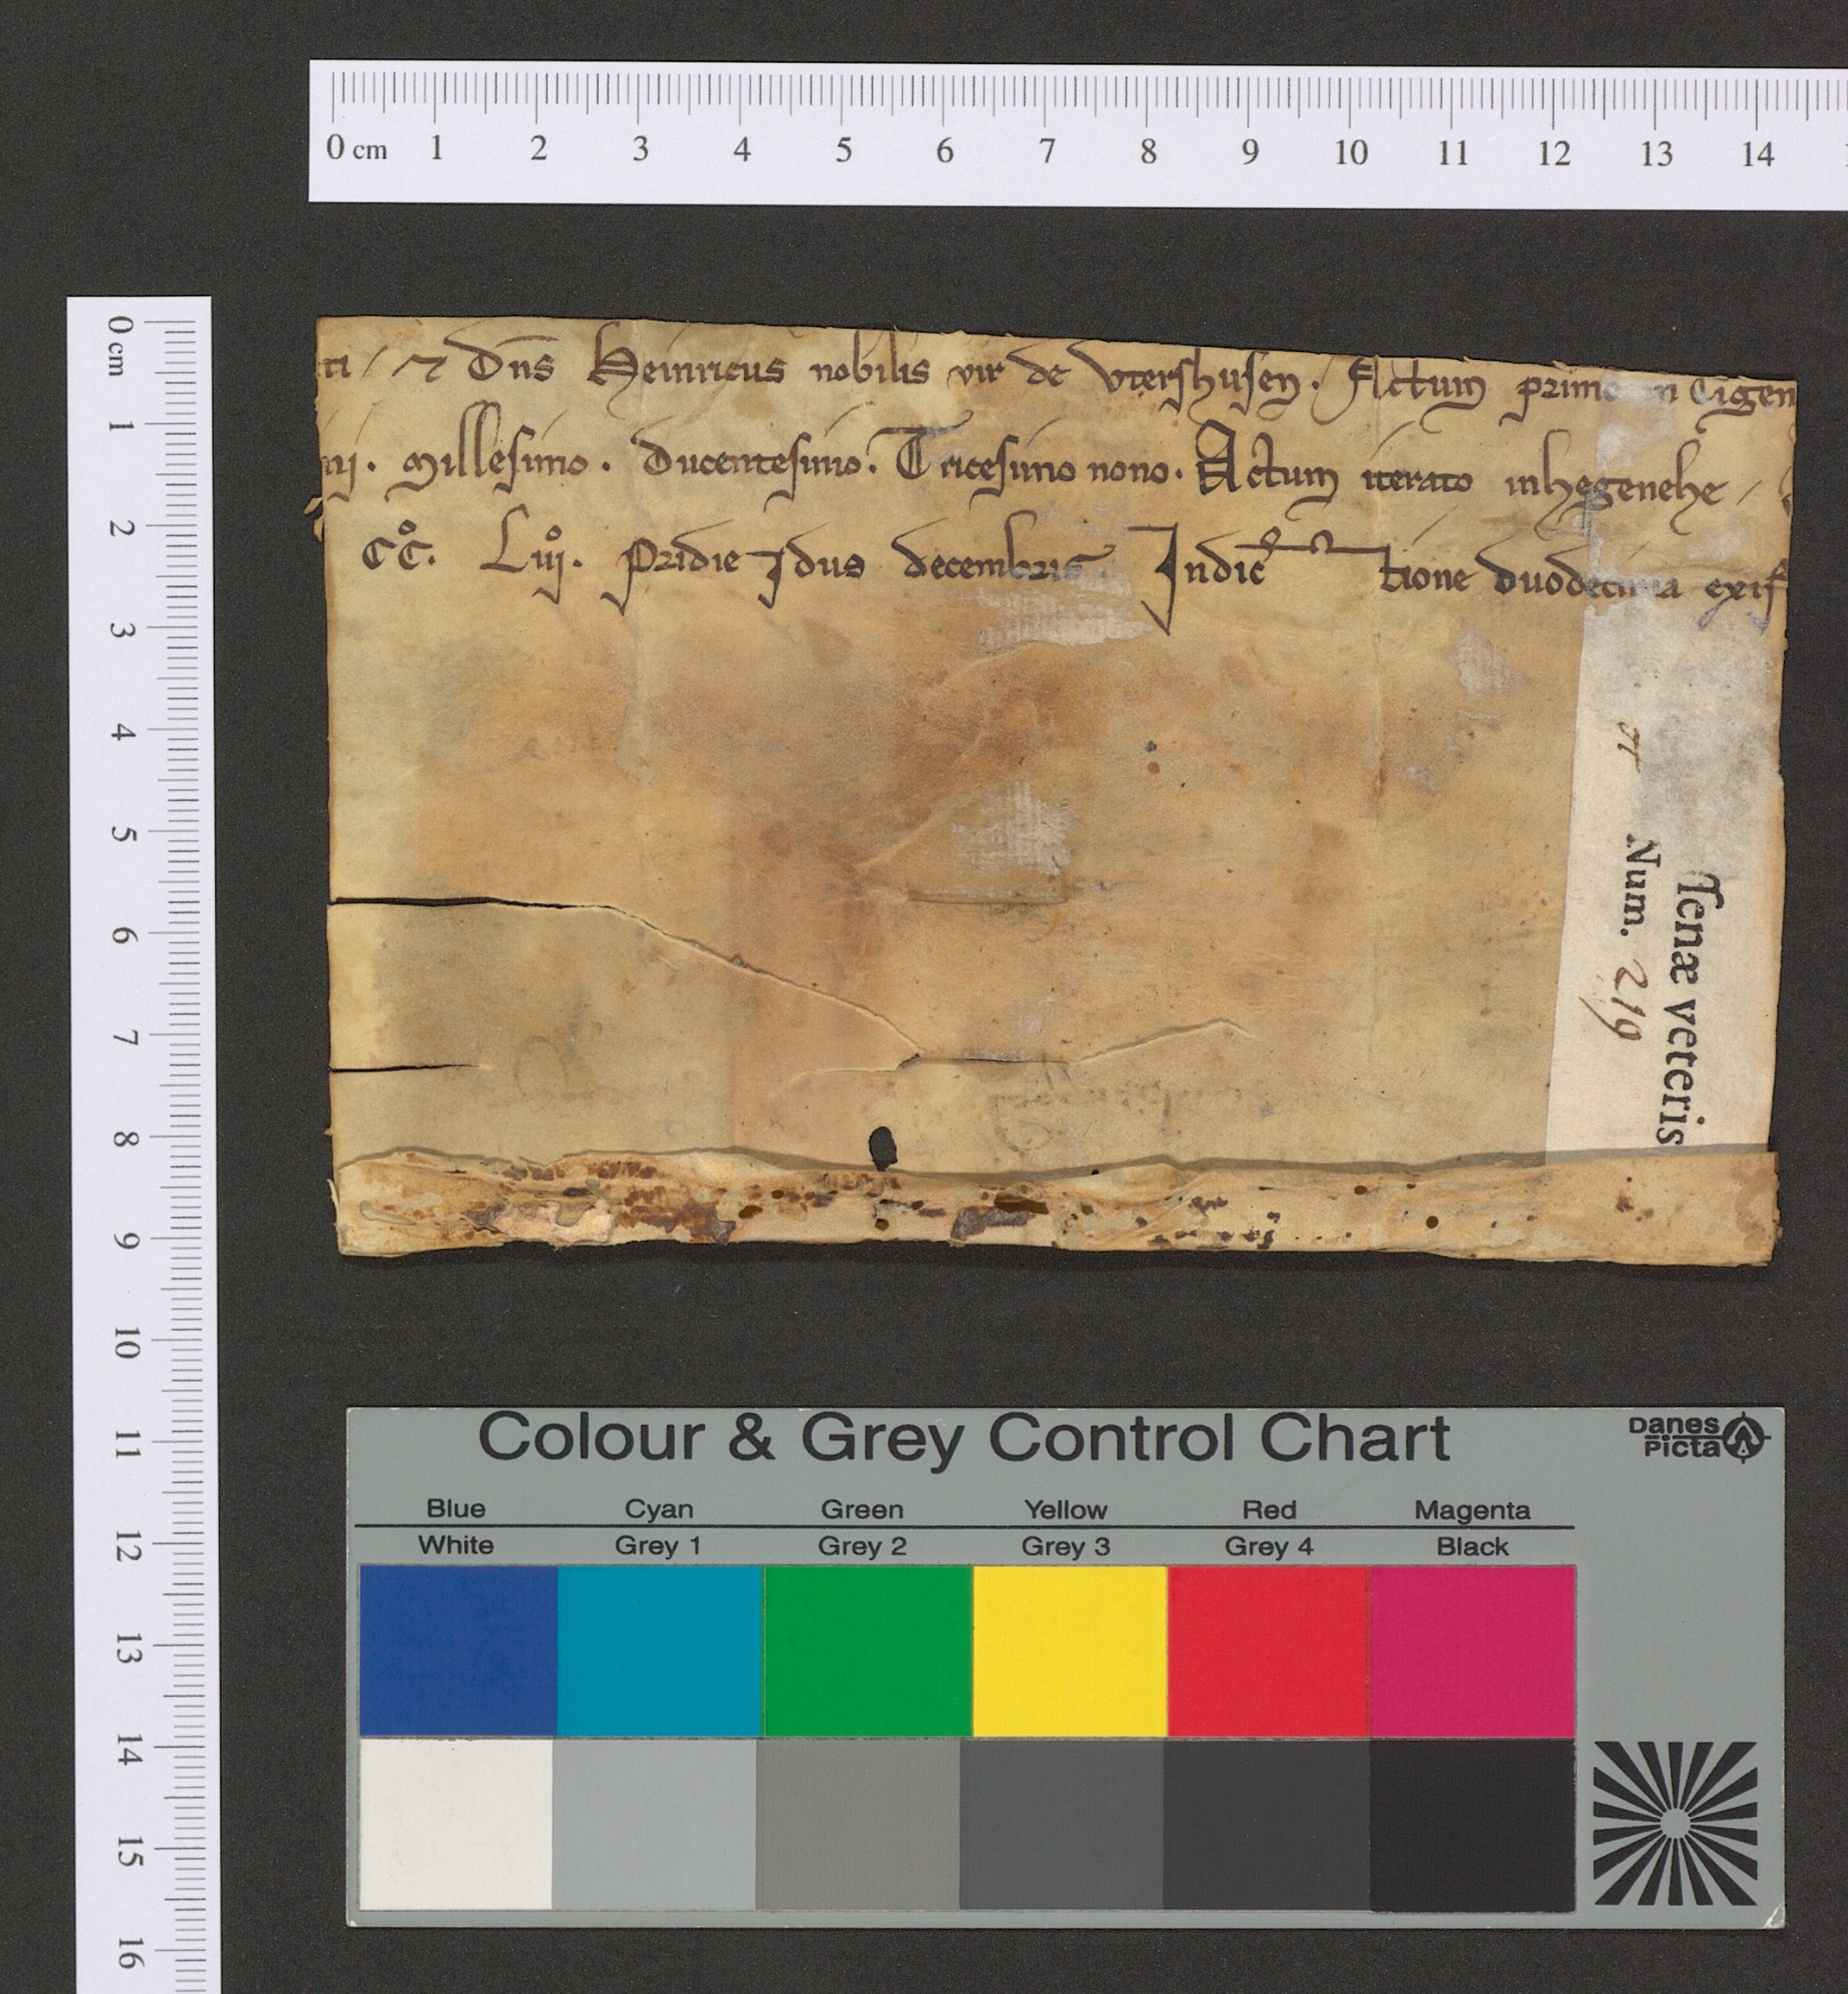 0 cm 1 2 3 4 5 6 7 8 9 10 11 12 13 14
0 cm 1 2 3 4 5 6 7 8 9 10 11 12 13 14 15 16
ti / ⁊ Dn̄s Heinricus nobilis vir de Vtershusen. Actum primo in Eigen
nj. Millesimo. Ducentesimo. Tricesimo nono. Actum iterato inhegenehe /
CC°. Liij°. Pridie Idus decembris Indic tione duodecima exis
Tenæ veteris
Num. 219
Colour & Grey Control Chart
Danes Picta
Blue Cyan Green Yellow Red Magenta
White Grey 1 Grey 2 Grey 3 Grey 4 Black